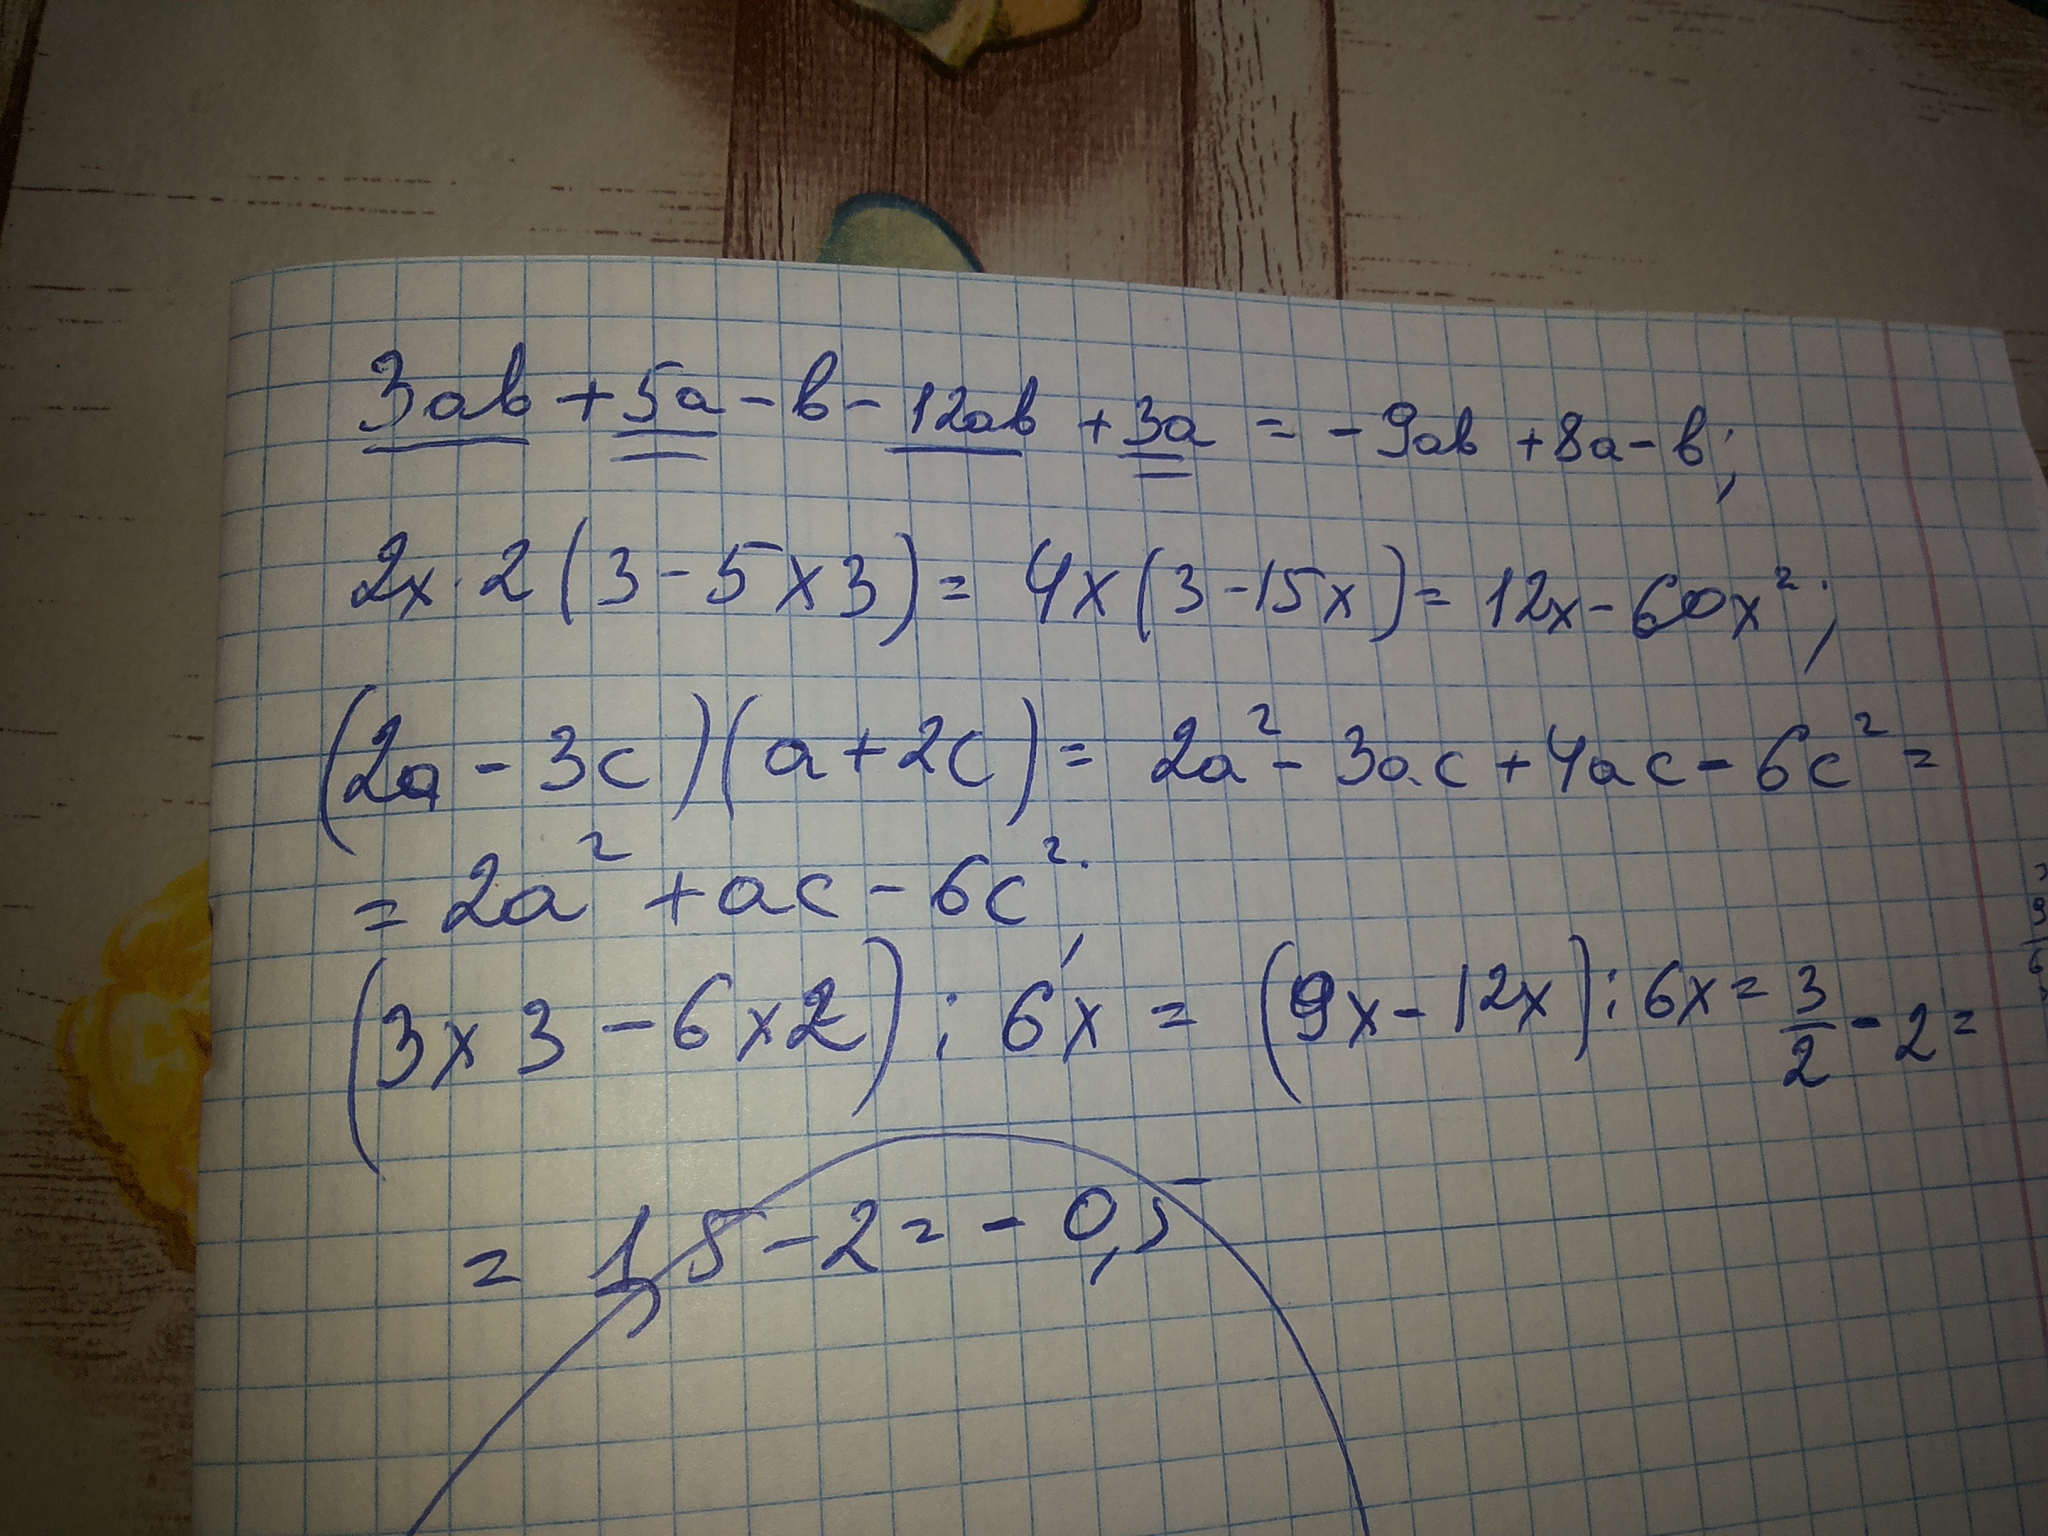 3ab + 5a - b - 12ab + 3a = - 9ab + 8a - b;
2x · 2 (3 - 5x3) = 4x (3 - 15x) = 12x - 60x²;
(2a - 3c)(a + 2c) = 2a² - 3ac + 4ac - 6c² =
= 2a² + ac - 6c²;
(3x3 - 6x2) : 6x = (9x - 12x) : 6x = 3/2 - 2 =
= 1,5 - 2 = - 0,5